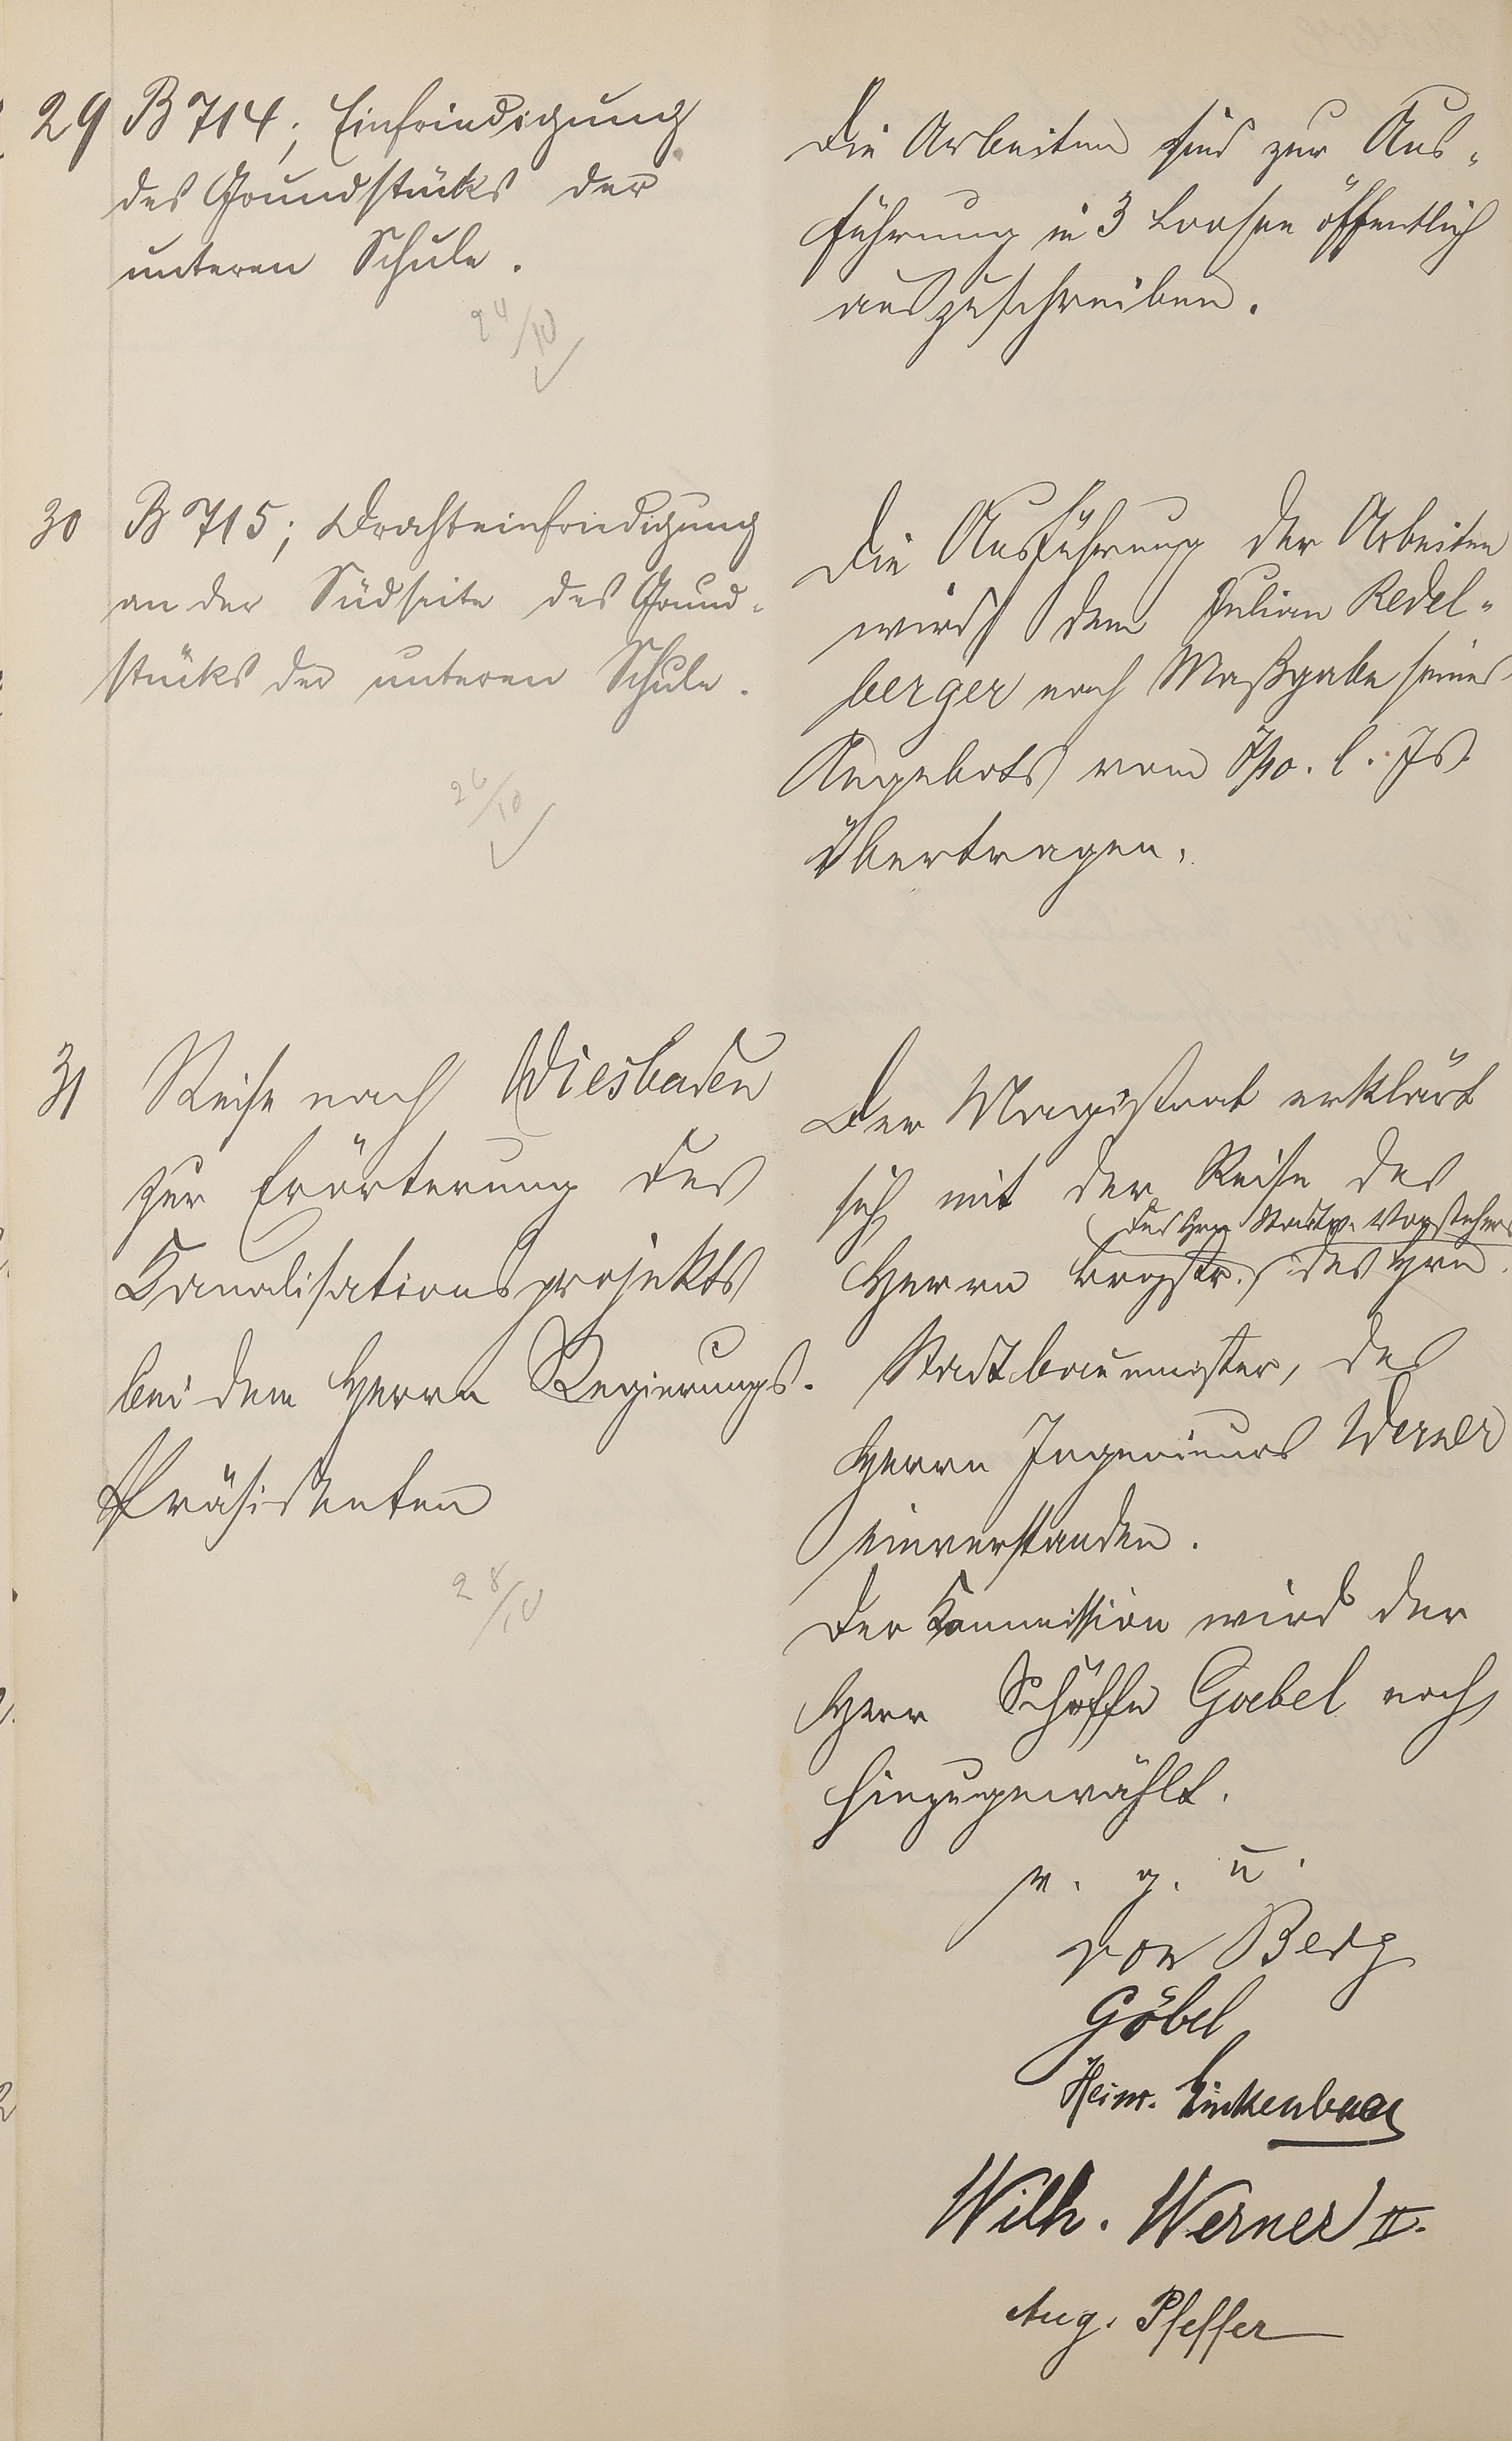 29 B 714; Einfriedigung
des Grundstücks der
unteren Schule.
24/10
Die Arbeiten sind zur Aus-
führung in 3 Loosen öffentlich
auszuschreiben.
30 B 715; Drahteinfriedigung
an der Südseite des Grund-
stücks der unteren Schule.
26/10
Die Ausführung der Arbeiten
wird dem Julian Redel-
berger nach Maßgabe seines
Angebots vom 7/10. l. Js.
übertragen.
31 Reise nach Wiesbaden
zur Erörterung des
Kanalisationsprojekts
bei dem Herrn Regierungs-
Präsidenten
28/10
Der Magistrat erklärt
sich mit der Reise des
des Hrn Stadtv. Vorstehers
Herrn Brgstr., des Hrn.
Stadtbaumeister, des
Herrn Ingenieurs Werner
einverstanden.
Der Kommission wird der
Herr Schöffe Goebel noch
hinzugewählt.
v. g. u.
von Berg
Göbel
Heinr. Hinkenbach
Wilh. Werner II.
Aug. Pfeffer